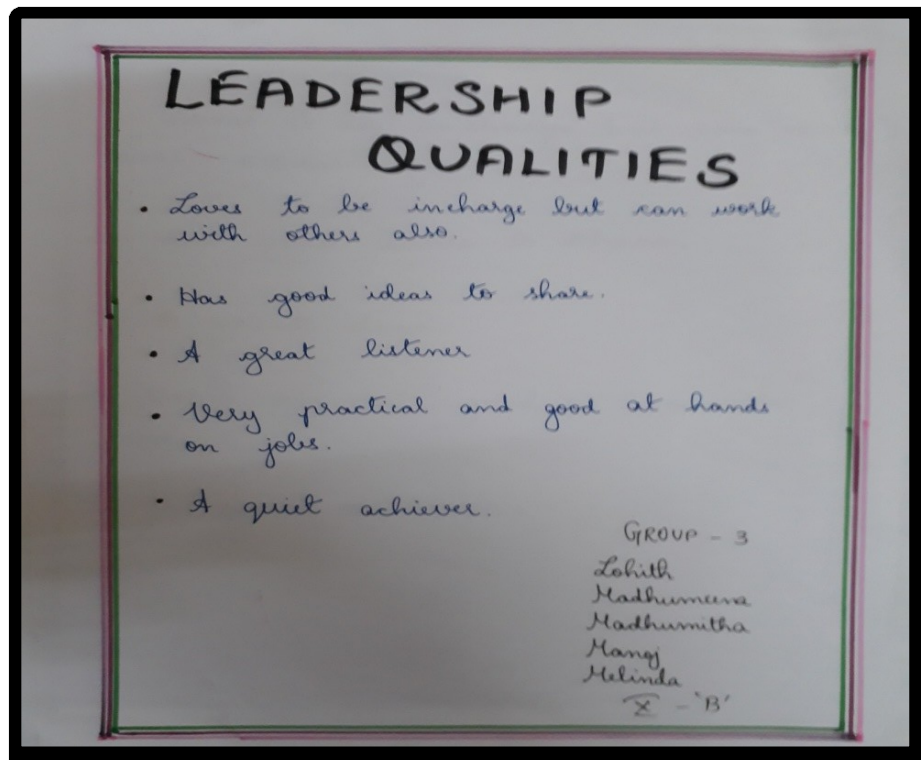 LEADERSHIP
QUALITIES
• Loves to be incharge but can work
with others also.
• Has good ideas to share.
• A great listener
• Very practical and good at hands
on jobs.
• A quiet achiever.
GROUP - 3
Lohith
Madhumeena
Madhumitha
Manoj
Melinda
X - 'B'